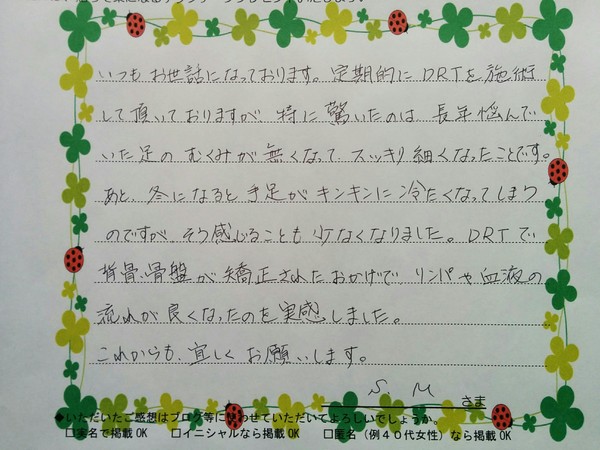 いつもお世話になっております。定期的にDRTを施術
して頂いておりますが、特に驚いたのは、長年悩んで
いた足のむくみが無くなって、スッキリ細くなったことです。
あと、冬になると手足がキンキンに冷たくなってしまう
のですが、そう感じることも少なくなりました。DRTで
背骨、骨盤が矯正されたおかげで、リンパや血液の
流れが良くなったのを実感しました。
これからも、宜しくお願いします。
S. M さま
◆いただいたご感想はブログ等に使わせていただいてよろしいでしょうか。
□実名で掲載OK □イニシャルなら掲載OK □匿名（例40代女性）なら掲載OK